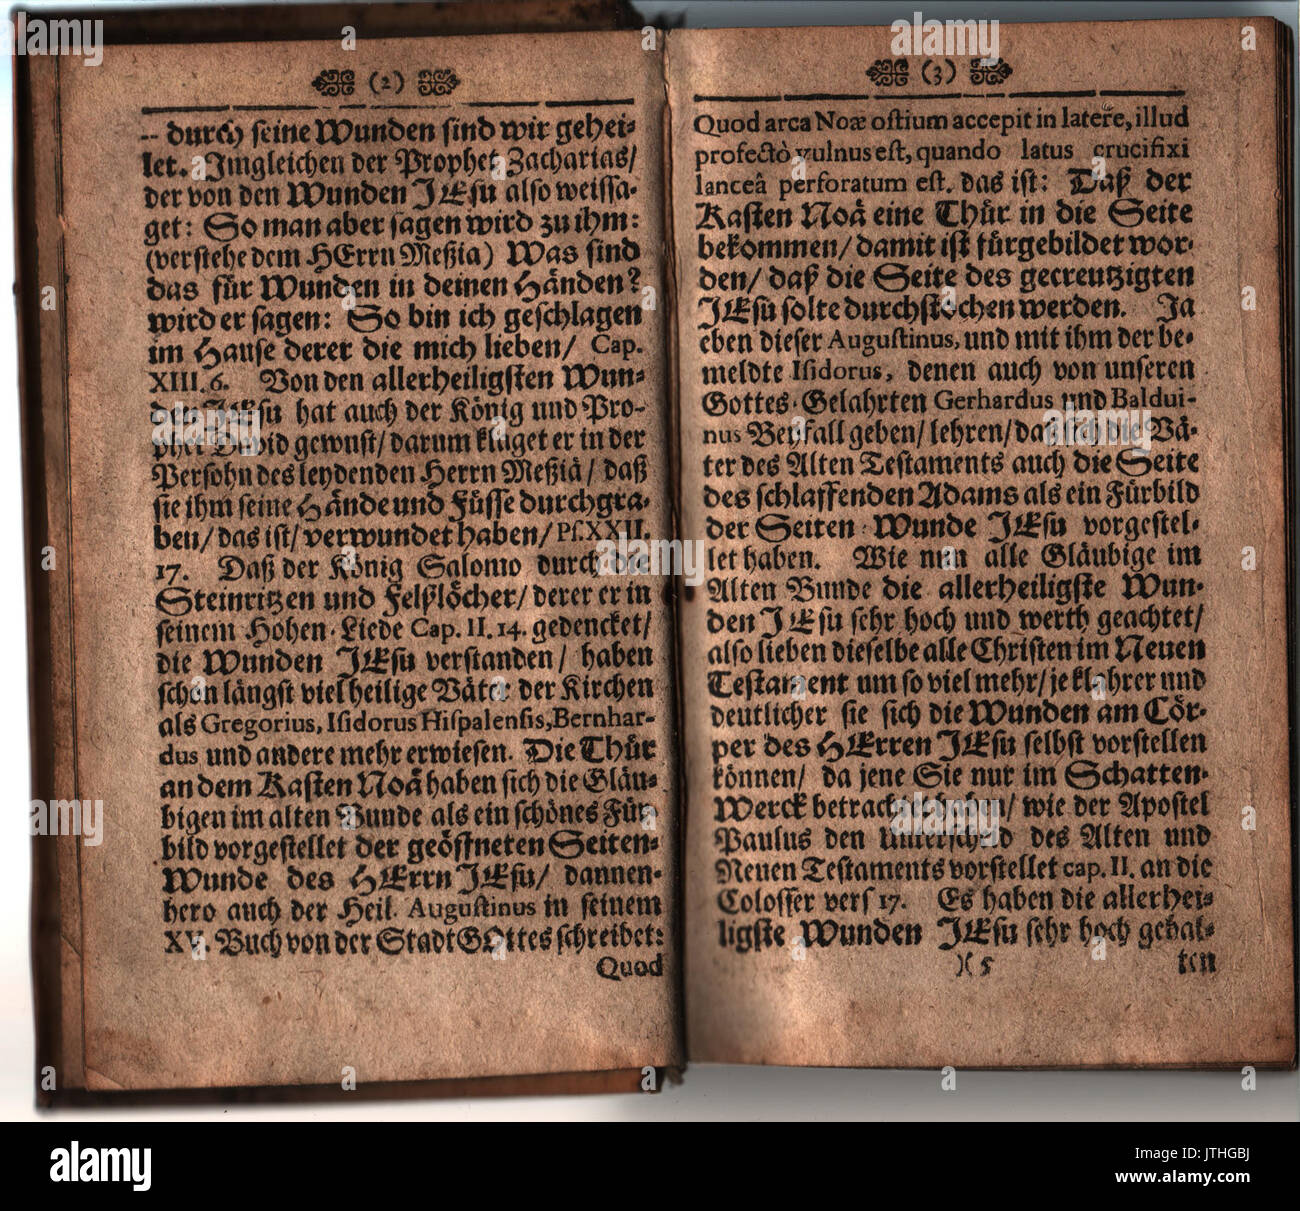 (2)
-- durch seine Wunden sind wir gehei⸗
let. Imgleichen der Prophet Zacharias/
der von den Wunden JEsu also weissa⸗
get: So man aber sagen wird zu ihm:
(verstehe dem HErrn Meßia) Was sind
das für Wunden in deinen Händen?
wird er sagen: So bin ich geschlagen
im Hause derer die mich lieben/ Cap.
XIII. 6. Von den allerheiligsten Wun⸗
den JEsu hat auch der König und Pro⸗
phet David gewust/ darum klaget er in der
Persohn des leydenden Herrn Meßiä/ daß
sie ihm seine Hände und Füsse durchgra⸗
ben/ das ist/ verwundet haben/ Ps. XXII.
17. Daß der König Salomo durch die
Steinritzen und Felßlöcher/ derer er in
seinem Hohen⸗Liede Cap. II. 14. gedencket/
die Wunden JEsu verstanden/ haben
schon längst viel heilige Väter der Kirchen
als Gregorius, Isidorus Hispalensis, Bernhar-
dus und andere mehr erwiesen. Die Thür
an dem Kasten Noä haben sich die Gläu⸗
bigen im alten Bunde als ein schönes Für⸗
bild vorgestellet der geöffneten Seiten⸗
Wunde des HErrn JEsu/ dannen⸗
hero auch der Heil. Augustinus in seinem
XV. Buch von der Stadt GOttes schreibet:
Quod
(3)
Quod arca Noæ ostium accepit in latere, illud
profectò vulnus est, quando latus crucifixi
lanceâ perforatum est. das ist: Daß der
Kasten Noä eine Thür in die Seite
bekommen/ damit ist fürgebildet wor⸗
den/ daß die Seite des gecreutzigten
JEsu solte durchstochen werden. Ja
eben dieser Augustinus, und mit ihm der be⸗
meldte Isidorus, denen auch von unseren
Gottes⸗Gelahrten Gerhardus und Baldui-
nus Beyfall geben/ lehren/ daß sich die Vä⸗
ter des Alten Testaments auch die Seite
des schlaffenden Adams als ein Fürbild
der Seiten⸗Wunde JEsu vorgestel⸗
let haben. Wie nun alle Gläubige im
Alten Bunde die allerheiligste Wun⸗
den JEsu sehr hoch und werth geachtet/
also lieben dieselbe alle Christen im Neuen
Testament um so viel mehr/ je klahrer und
deutlicher sie sich die Wunden am Cör⸗
per des HErren JEsu selbst vorstellen
können/ da jene Sie nur im Schatten⸗
Werck betrachtet haben/ wie der Apostel
Paulus den Unterscheid des Alten und
Neuen Testaments vorstellet cap. II. an die
Colosser vers 17. Es haben die allerhei⸗
ligste Wunden JEsu sehr hoch gehal⸗
)( 5 ten
alamy
Image ID: JTHGBJ
www.alamy.com